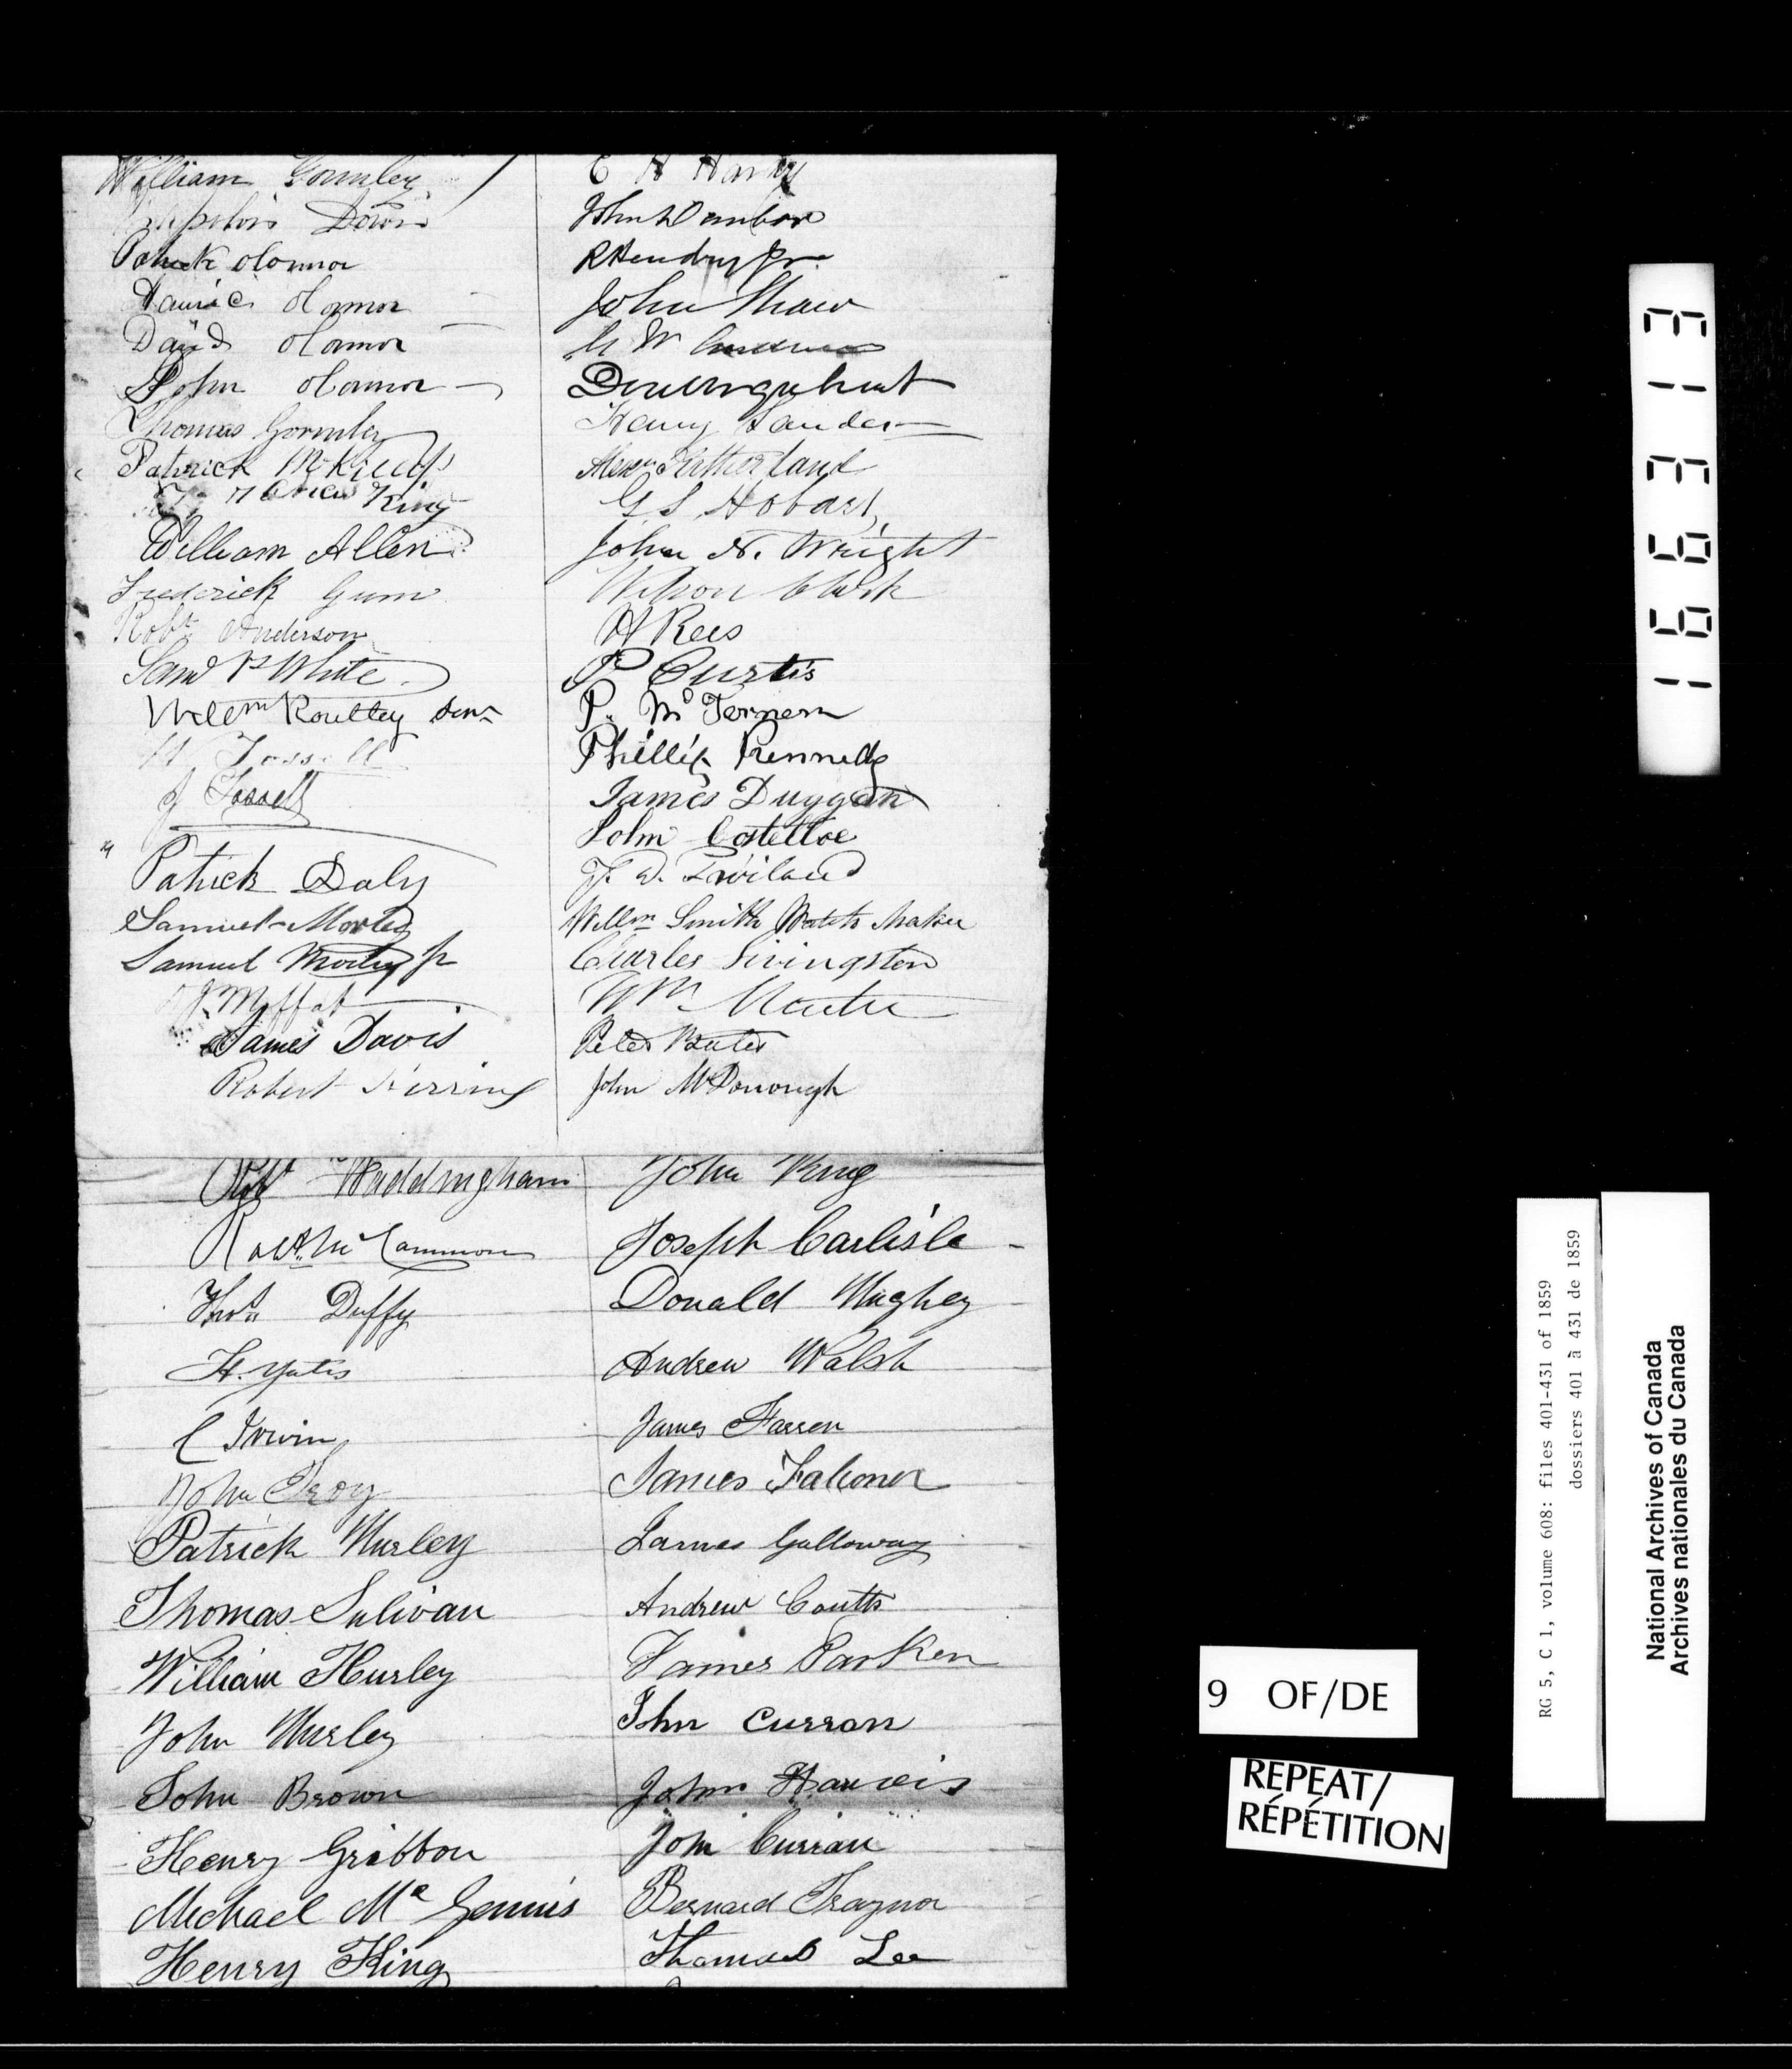 William Gormley
Patrick oConnor
oConnor
David oConnor
John oConnor
Thomas Gormley
Patrick
King
William Allen
Frederick Gum
Robt Anderson
Saml White
Willm Routley Senr
W Fossell
J Fossell
Patrick Daly
Samuel Morley
Samuel Morley Jr
J. Moffat
James Davis
Robert
E H
John Dunbar
R Hendry Jr.
John Shaw
W
Henry Sander
Alexr Sutherland
G S Hobart
John N. Wright
Wilson Clark
H Rees
P Curtis
P. Mc Ternern
Phillip Kennedy
James Duggan
John Costelloe
Willm Smith Watch Maker
Charles Livingston
Wm
Peter
John McDonough
Robt Waddingham
Robt. Mc Cammon
Thos Duffy
H. Yates
C Irwin
John Troy
Patrick Hurley
Thomas Sulivan
William Hurley
John Hurley
John Brown
Henry Gribbon
Michael Mc Gennis
Henry King
John King
Joseph Carlisle
Donald Hughey
Andrew Walsh
James Farren
James Falconer
James Galloway
Andrew Coutts
James Parker
John Curran
John
John Curran
Bernard Traynor
Thomas Lee
166313
RG 5, C 1, volume 608: files 401-431 of 1859
dossiers 401 à 431 de 1859
National Archives of Canada
Archives nationales du Canada
9 OF/DE
REPEAT/
RÉPÉTITION